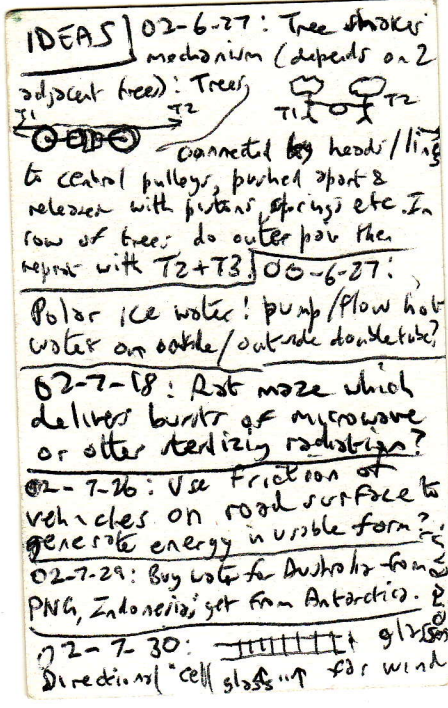 IDEAS 02-6-27: Tree shaker
mechanism (depends on 2
adjacent trees): Trees
T1 T2
T1 T2
connected by heads/
to central pulleys, pushed apart &
released with pistons, springs etc. In
row of trees do outer pair then
repeat with T2+T3. 00-6-27:
Polar ice water! pump/flow hot
water on outside/outside double tube?
02-7-18: Rat maze which
delivers bursts of microwave
or other sterilizing radiation?
02-7-26: Use friction of
vehicles on road surface to
generate energy in usable form?
02-7-29: Buy water for Australia from
PNG, Indonesia, get from Antarctica.
02-7-30: glass
Directional "cell glass" for wind